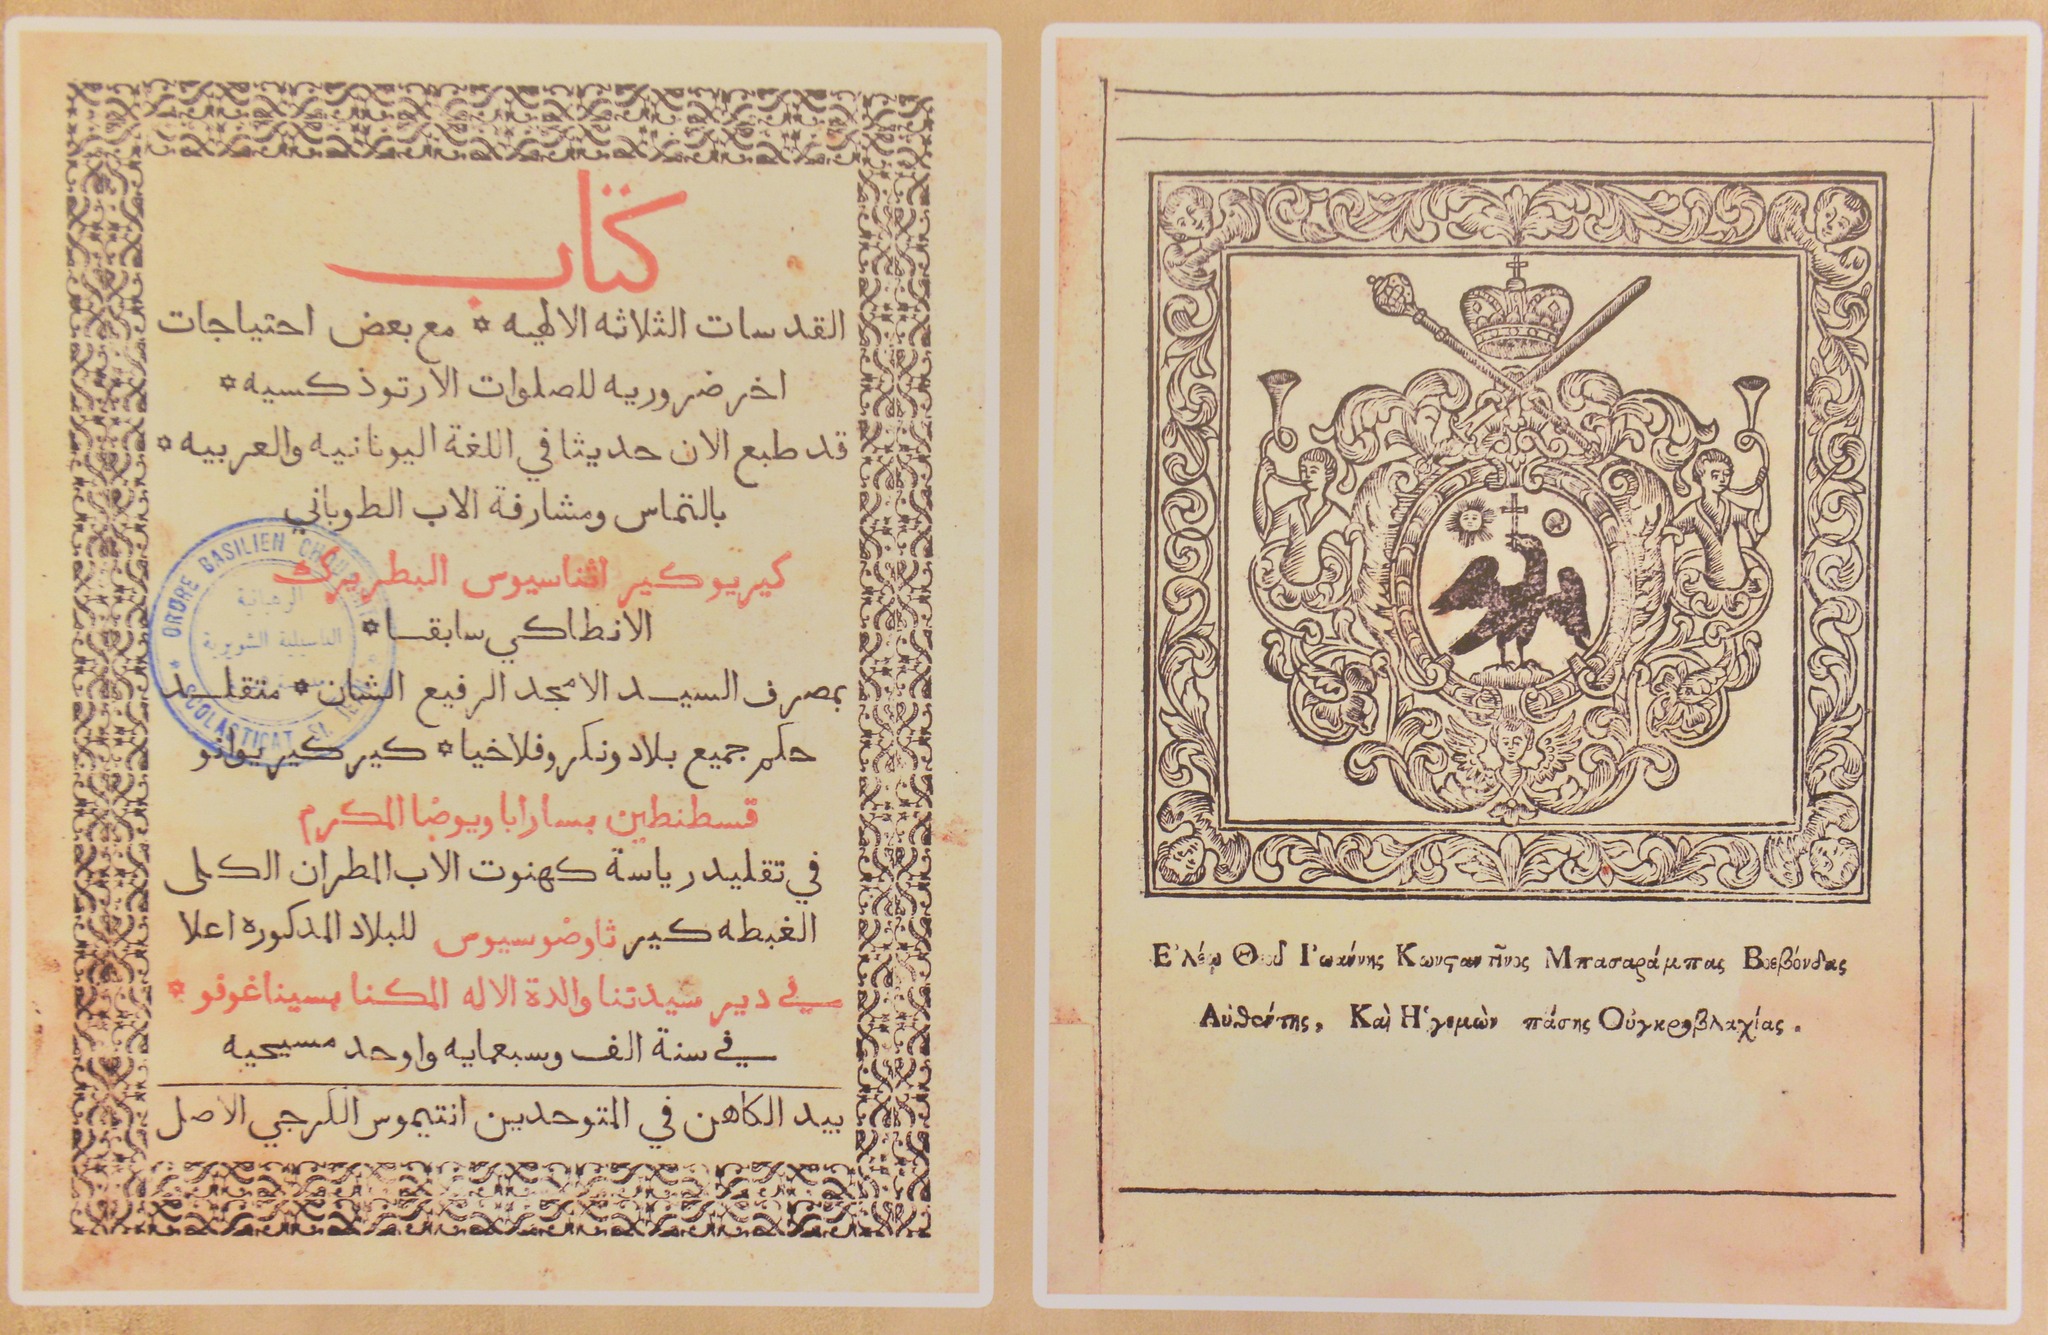 كتاب
القدسات الثلاثه الالهيه ✡ مع بعض احتياجات
اخر ضروريه للصلوات الارتوذكسيه ✡
قد طبع الان حديثا في اللغة اليونانيه والعربيه ✡
بالتماس ومشارفة الاب الطوباني
كيريوكير اثناسيوس البطريرك
الانطاكي سابقا ✡
بمصرف السيد الامجد الرفيع الشان ✡ متقلد
حكم جميع بلاد ونكروفلاخيا ✡ كير كير يوانو
قسطنطين بسارابا ويوضا المكرم
في تقليد رياسة كهنوت الاب المطران الكلى
الغبطه كير ثاوضوسيوس للبلاد المذكوره اعلا
في دير سيدتنا والدة الاله المكنا بسيناغوفو ✡
في سنة الف وسبعمايه واوحد مسيحيه
بيد الكاهن في المتوحدين انتيموس الكرجي الاصل
ORDRE BASILIEN
الرهبانية
الباسيلية الشويرية
SCOLASTICAT
Ἐλέῳ Θεȣ͂ Ἰωάννης Κωνϛαντῖνος Μπασαράμπας Βοεβόνδας
Αὐθέντης, Καὶ Ἡγεμὼν πάσης Οὐγκροβλαχίας.